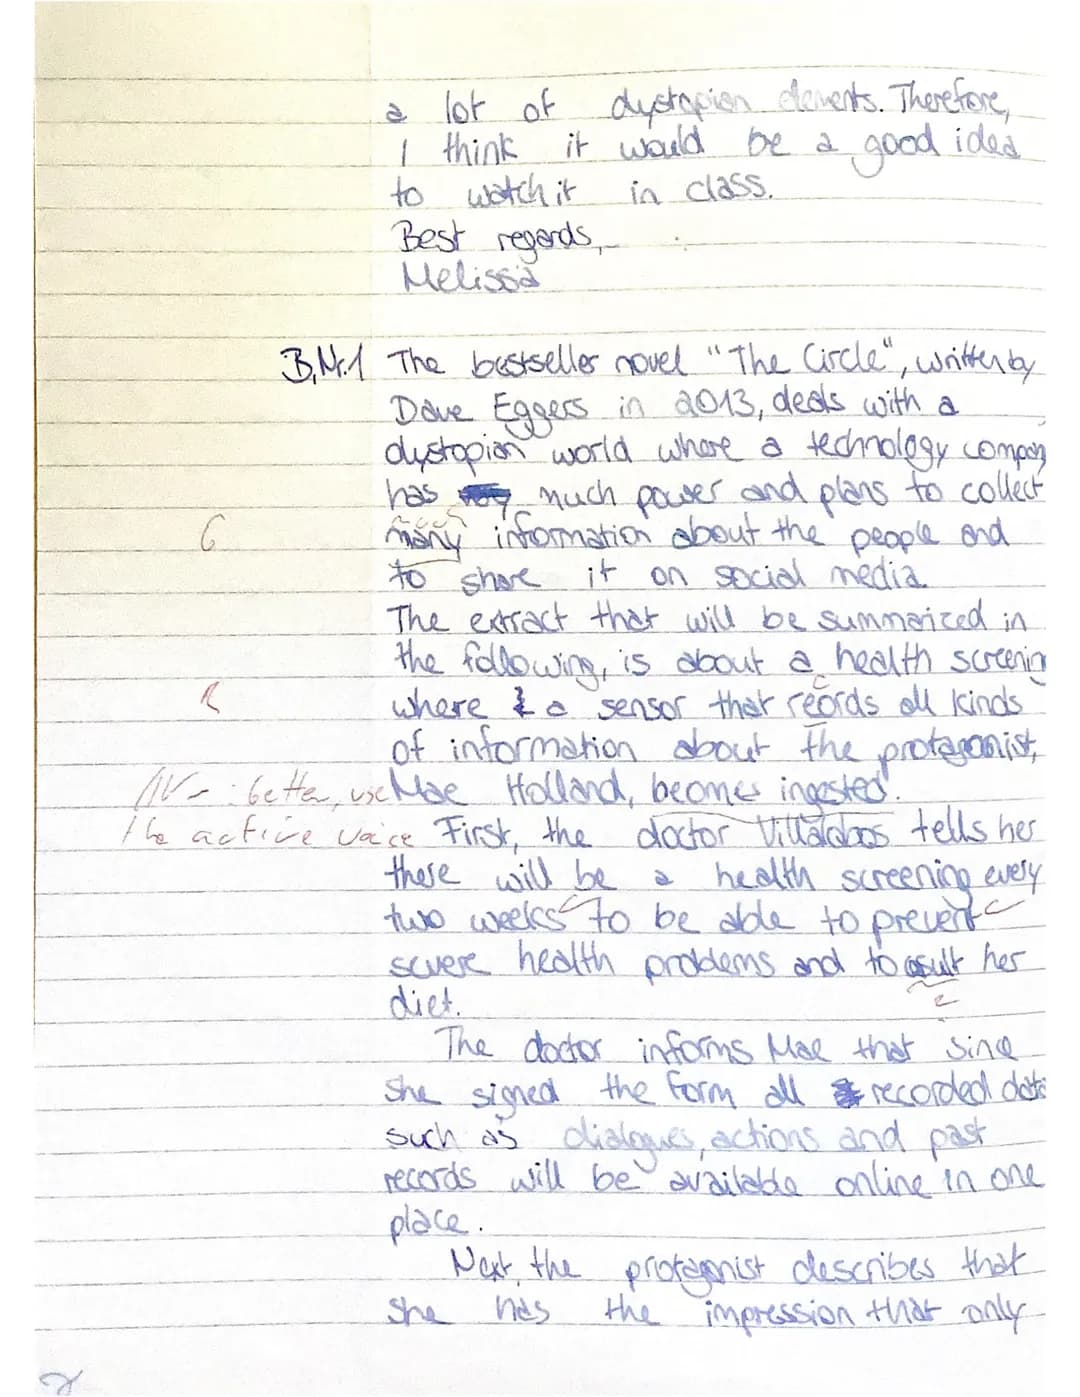 a lot of dystopian elements. Therefore,
I think it would be a good idea
to watch it in class.
Best regards,
Melissa
B,Nr.1 The bestseller novel "The Circle", written by
Dave Eggers in 2013, deals with a
dystopian world where a technology company
has much power and plans to collect
G many information about the people and
to share it on social media.
The extract that will be summarized in
the following, is about a health screening
R where a sensor that reords all kinds
of information about the protagonist,
: better, use Mae Holland, beomes ingested.
the active voice First, the doctor Villalobos tells her
there will be a health screening every
two weeks to be able to prevent
severe health problems and to asult her
diet.
The doctor informs Mae that since
she signed the form all recorded data
such as dialogues, actions and past
records will be available online in one
place.
Next, the protagonist describes that
she has the impression that only
2